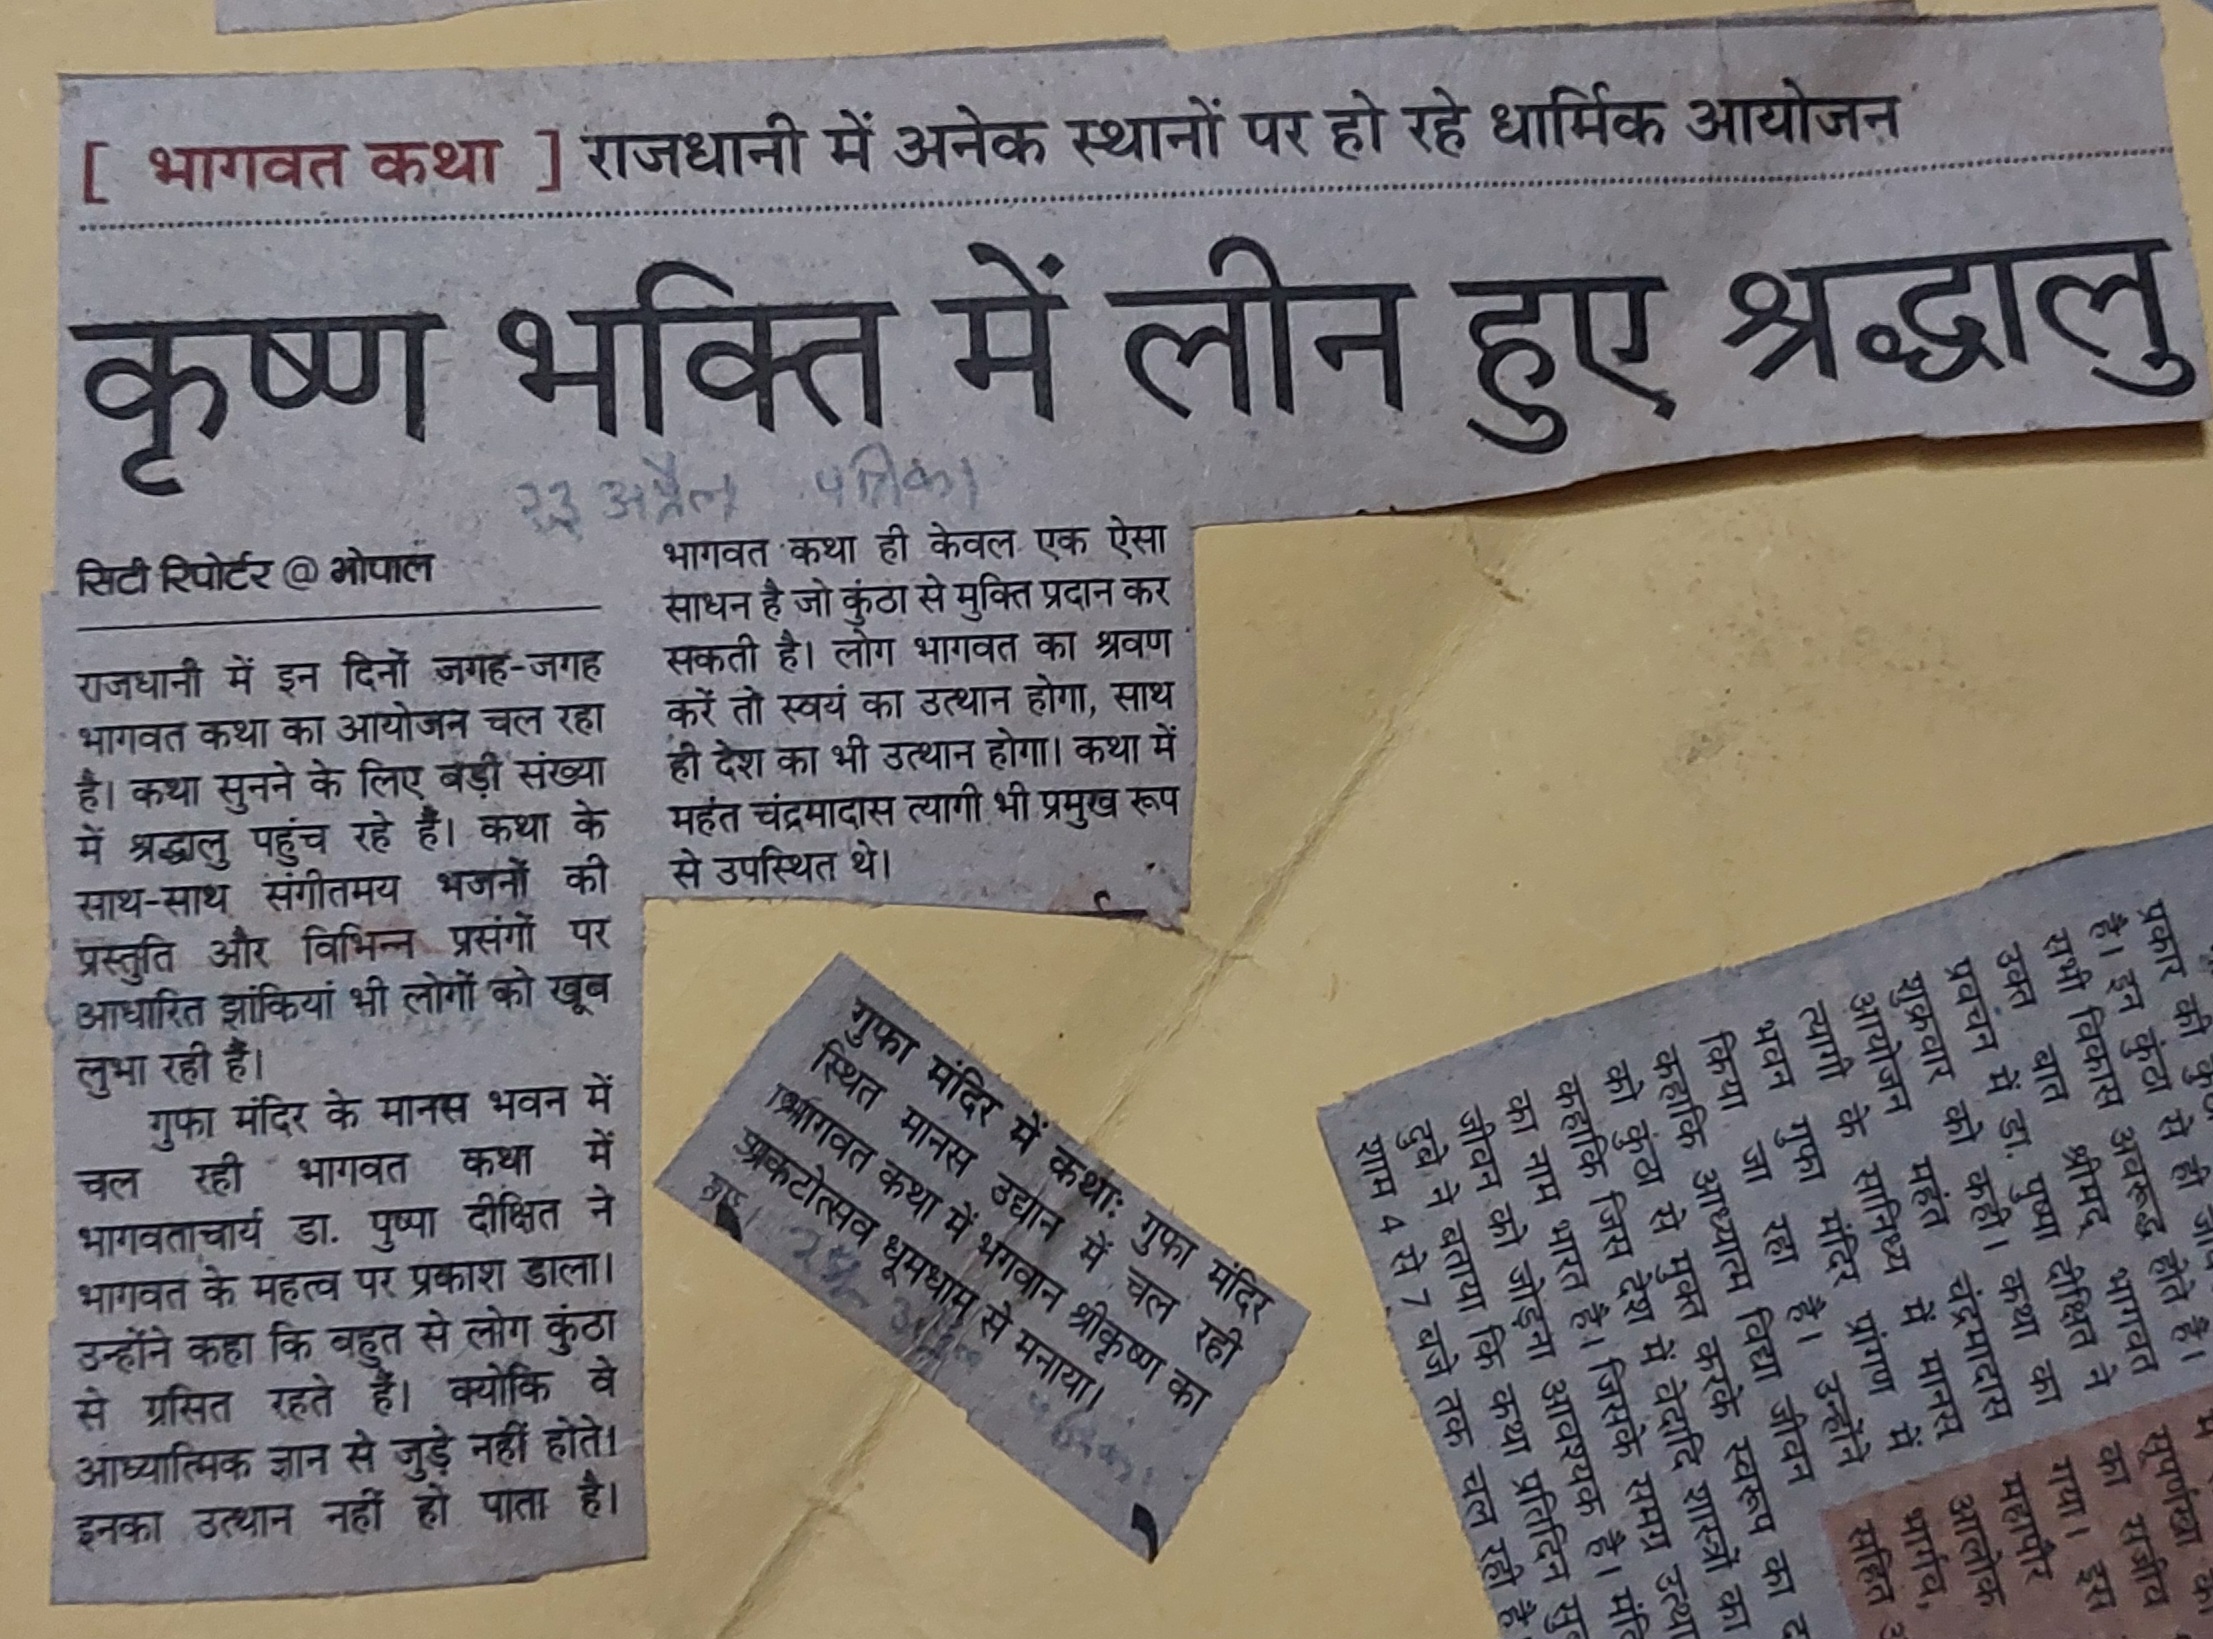 [ भागवत कथा ] राजधानी में अनेक स्थानों पर हो रहे धार्मिक आयोजन
कृष्ण भक्ति में लीन हुए श्रद्धालु
२३ अप्रैल पत्रिका
सिटी रिपोर्टर @ भोपाल
राजधानी में इन दिनों जगह-जगह
भागवत कथा का आयोजन चल रहा
है। कथा सुनने के लिए बड़ी संख्या
में श्रद्धालु पहुंच रहे हैं। कथा के
साथ-साथ संगीतमय भजनों की
प्रस्तुति और विभिन्न प्रसंगों पर
आधारित झांकियां भी लोगों को खूब
लुभा रही हैं।
गुफा मंदिर के मानस भवन में
चल रही भागवत कथा में
भागवताचार्य डा. पुष्पा दीक्षित ने
भागवत के महत्व पर प्रकाश डाला।
उन्होंने कहा कि बहुत से लोग कुंठा
से ग्रसित रहते हैं। क्योंकि वे
आध्यात्मिक ज्ञान से जुड़े नहीं होते।
इनका उत्थान नहीं हो पाता है।
भागवत कथा ही केवल एक ऐसा
साधन है जो कुंठा से मुक्ति प्रदान कर
सकती है। लोग भागवत का श्रवण
करें तो स्वयं का उत्थान होगा, साथ
ही देश का भी उत्थान होगा। कथा में
महंत चंद्रमादास त्यागी भी प्रमुख रूप
से उपस्थित थे।
गुफा मंदिर में कथा: गुफा मंदिर
स्थित मानस उद्यान में चल रही
भागवत कथा में भगवान श्रीकृष्ण का
प्रकटोत्सव धूमधाम से मनाया।
प्रकार की
है। इन कुंठा से ही
सभी विकास अवरूद्ध होते है।
उक्त बात श्रीमद भागवत
प्रवचन में डा. पुष्पा दीक्षित ने
शुक्रवार को कही। कथा का
आयोजन महंत चंद्रमादास
त्यागी के सानिध्य में मानस
भवन गुफा मंदिर प्रांगण में
किया जा रहा है। उन्होंने
कहाकि आध्यात्म विद्या जीवन
को कुंठा से मुक्त करके स्वरूप का
कहाकि जिस देश में वेदादि शास्त्रों का
का नाम भारत है। जिसके समग्र
जीवन को जोड़ना आवश्यक है।
दुबे ने बताया कि कथा प्रतिदिन
शाम 4 से 7 बजे तक चल रही है
सुपर्णखा
का सजीव
गया। इस
महापौर
आलोक
भार्गव,
सहित